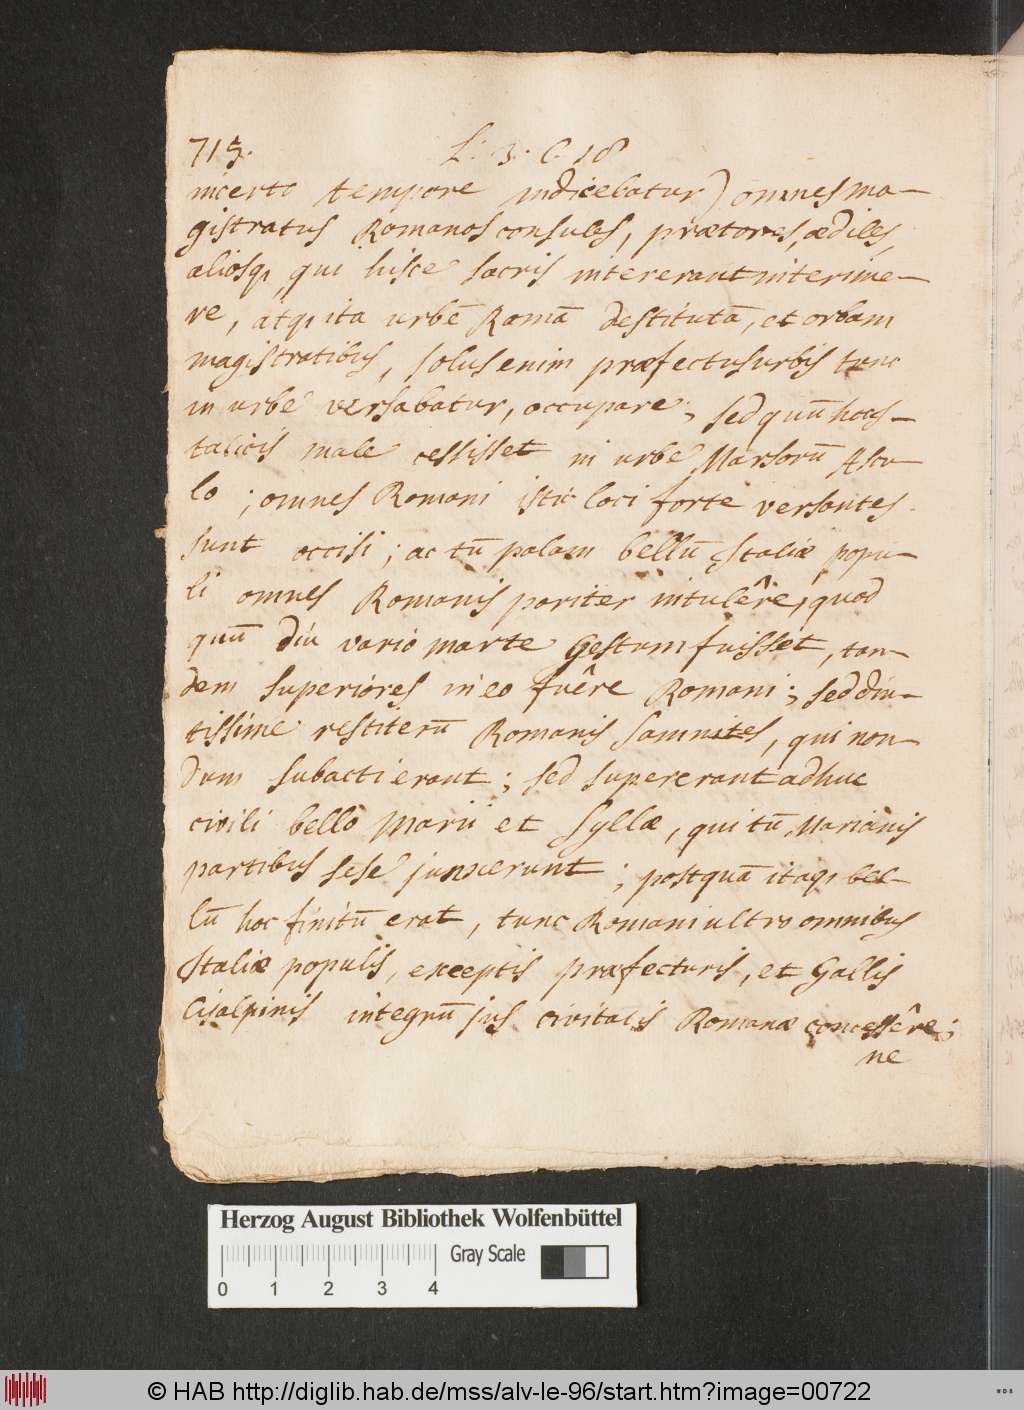 715.
L. 3. C. 18
incerto tempore indicebatur) omnes ma-
gistratus Romanos consules, praetores, aediles,
aliosq, qui hisce sacris intererant interime-
re, atq, ita urbē Romā destitutā, et orbam
magistratibus, solus enim praefectus urbis tunc
in urbe versabatur, occupare; sed quū hoc I-
talicis male cessisset in urbe Marsorū Ascu-
lo; omnes Romani istic loci forte versantes
sunt occisi; ac tū palam bellū Italiae popu-
li omnes Romanis pariter intulêre, quod
quū diu vario marte gestum fuisset, tan-
dem superiores in eo fuêre Romani; sed diu-
tissime restiterū Romanis Samnites, qui non-
dum subacti erant; sed supererant adhuc
civili bello Marii et Syllae, qui tū Marianis
partibus sese junxerunt; postquā itaq, bel-
lū hoc finitū erat, tunc Romani ultro omnibus
Italiae populis, exceptis praefecturis, et Gallis
Cisalpinis integrū jus civitatis Romanae concessêre;
ne
Herzog August Bibliothek Wolfenbüttel
Gray Scale
0 1 2 3 4
© HAB http://diglib.hab.de/mss/alv-le-96/start.htm?image=00722